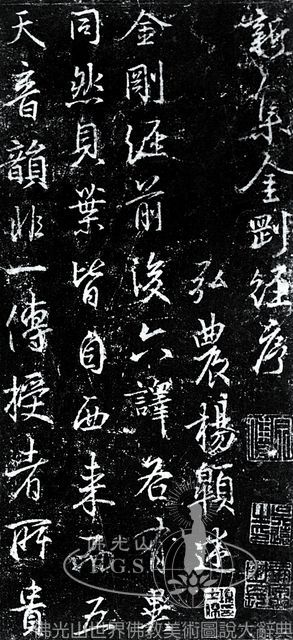 新集金剛經序
弘農楊述
金剛經前後六譯各有異
同然貝葉皆自西來而五
天音韻非一傳授者所貴
佛光山
佛光山世界佛教美術圖說大辭典